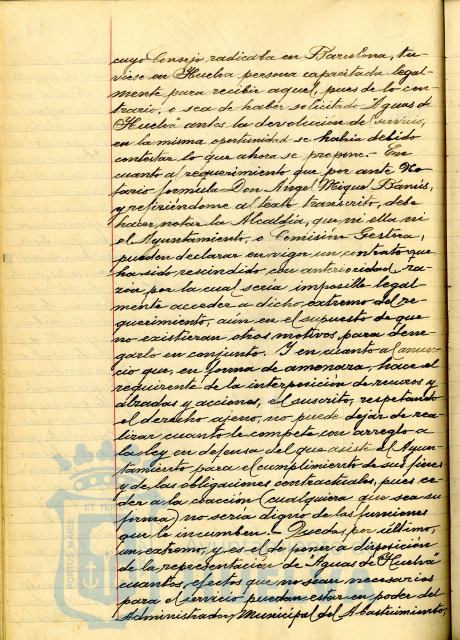 cuyo Consejo radicaba en Barcelona, tu-
viese en Huelva persona capacitada legal-
mente para recibir aquel, pues de lo con-
trario, o sea de haber solicitado "Aguas de
Huelva" antes la devolución de servicio,
en la misma oportunidad se habría debido
contestar lo que ahora se propone.- En
cuanto al requerimiento que por ante No-
tario formula Don Angel Miquel Bamis,
y refiriéndome al texto transcrito, debe
hacer notar la Alcaldía, que ni ella ni
el Ayuntamiento, o Comisión Gestora,
pueden declarar en vigor un contrato que
ha sido rescindido con anterioridad, ra-
zón por la cual sería imposible legal-
mente acceder a dicho extremo del re-
querimiento, aún en el supuesto de que
no existieran otros motivos para dene-
garlo en conjunto. Y en cuanto al anun-
cio que, en forma de amenaza, hace el
requirente de la interposición de recursos y
alzadas y acciones, el suscrito, respetando
el derecho ajeno, no puede dejar de rea-
lizar cuanto le compete con arreglo a
la ley en defensa del que asiste al Ayun-
tamiento para el cumplimiento de sus fines
y de las obligaciones contractuales, pues ce-
der a la coacción (cualquiera que sea su
forma) no sería digno de las funciones
que le incumben.- Queda, por último,
un extremo, y es el de poner a disposición
de la representación de "Aguas de Huelva"
cuantos efectos que no sean necesarios
para el servicio puedan estar en poder del
Administrador Municipal del Abastecimiento,
PORTUS MARIS ET TE